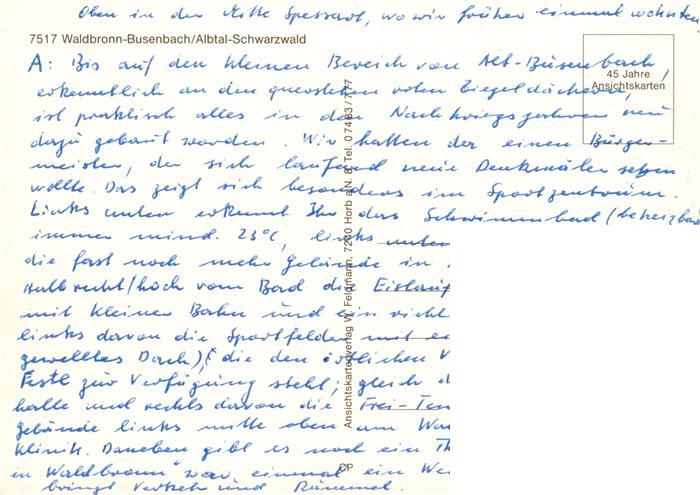 Oben in der Mitte Spessart, wo wir früher einmal wohnten.
7517 Waldbronn-Busenbach/Albtal-Schwarzwald
45 Jahre
Ansichtskarten
A: Bis auf den kleinen Bereich von Alt-Busenbach,
erkenntlich an den roten Ziegeldächern,
ist praktisch alles in den Nachkriegsjahren neu
dazu gebaut worden. Wir hatten der einen Bürger-
meister, der sich laufend neue Denkmäler setzen
wollte. Das zeigt sich besonders im Sportzentrum.
Links unten erkennt Ihr das Schwimmbad (beheizbar
immer mind. 23°C, links unten
die fast noch mehr Gelände in
Halbrecht/hoch vom Bad die Eislauf
mit kleiner Bahn und ein
links davon die Sportfelder mit
gewelltes Dach), die den örtlichen V
Festl zur Verfügung steht; gleich d
halle und rechts davon die Frei-Ten
gebäude links mitte oben am Wa
Klinik. Daneben gibt es noch ein Th
in Waldbronn" zwar einmal ein We
bringt Verkehr und Rummel.
Ansichtskartenverlag W. Feldmann, 7240 Horb a.N. 8, Tel. 07483/777
CP